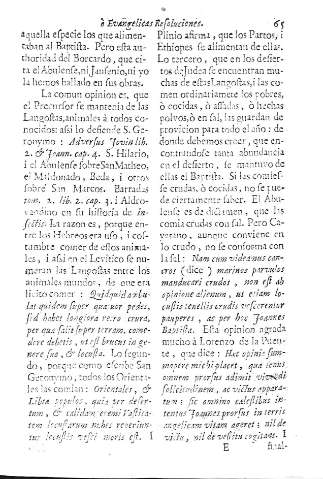 ò Evangelicas Resoluciones. 65
aquella especie los que alimen-
taban al Baptista. Pero esta au-
thoridad del Borcardo, que ci-
ta el Abulense, ni Jansenio, ni yo
la hemos hallado en sus obras.
La comun opinion es, que
el Precursor se mantenia de las
Langostas, animales à todos cono-
cidos: asi lo defiende S. Ge-
ronymo: Adversus Jovin. lib.
2. & Joann. cap. 4. S. Hilario,
i el Abulense sobre San Matheo,
el Maldonado, Beda, i otros
sobre San Marcos. Barradas
tom. 2. lib. 2. cap. 3. i Aldro-
vandino en su historia de in-
sectis. La razon es, porque en-
tre los Hebreos era uso, i cos-
tumbre comer de estos anima-
les, i asi en el Levitico se nu-
meran las Langostas entre los
animales mundos, de que era
licito comer:
lat quidem super quatuor pedes,
sed habet longiora retro crura,
per quæ salit super terram, come-
dere debetis, ut est brucus in ge-
nere suo, & locusta. Lo segun-
do, porque como escribe San
Geronymo, todos los Orienta-
les las comian: Orientales, &
Libiæ populos, quia per deser-
tum, & calidam eremi vastita-
tem locustarum nubes
locustis vesci moris est. I
Plinio afirma, que los Partos, i
Ethiopes se alimentan de ellas.
Lo tercero, que en los desier-
tos de Judea se encuentran mu-
chas de estas Langostas, i las co-
men ordinariamente los pobres,
ò cocidas, ò asadas, ò hechas
polvos, ò en sal, las guardan de
provicion para todo el año: de
donde debemos creer, que en-
contrandose tanta abundancia
en el desierto, se mantuvo de
ellas el Baptista. Si las comies-
se crudas, ò cocidas, no se pue-
de ciertamente saber. El Abu-
lense es de dictamen, que las
comia crudas con sal. Pero Ca-
yetano, aunque conviene en
lo crudo, no se conforma con
la sal: Nam cum videamus can-
cros (dice) marinos parvulos
manducari crudos, non est ab
opinione alienum, ut etiam lo-
custis tenellis crudis vescerentur
pauperes, ac per hoc Joannes
Baptista. Esta opinion agrada
mucho à Lorenzo de la Puen-
te, que dice: Hæc opinio sum-
mopere mihi placet, qua tenus
omnem prorsus adimit vivendi
solicitudinem, ac victus appara-
tum: sic omnino cælestibus in-
tentus Joannes prorsus in terris
angelicam vitam ageret: nil de
victu, nil de vestitu cogitans. I
E